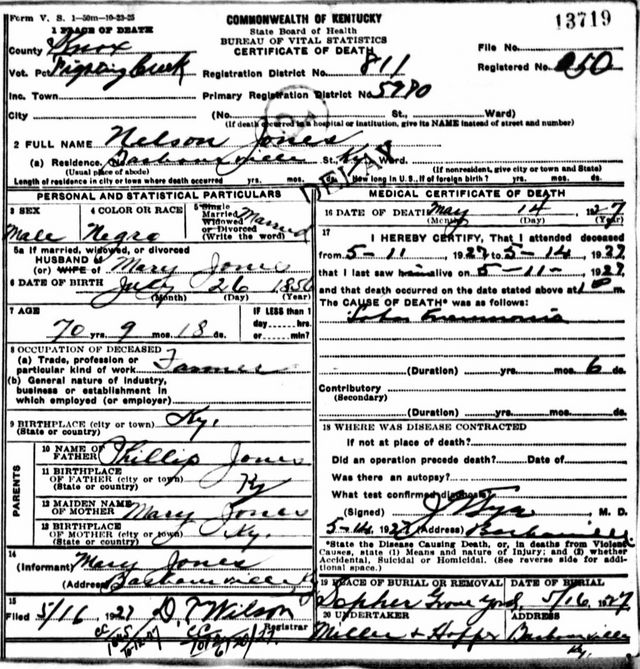 Form V. S. 1—50m—10-23-25
1 PLACE OF DEATH
COMMONWEALTH OF KENTUCKY
State Board of Health
BUREAU OF VITAL STATISTICS
CERTIFICATE OF DEATH
13719
County Knox
File No.
Vot. Pct
Registration District No. 811
Registered No. 250
Inc. Town
Primary Registration District No. 5990
City (No. St., Ward)
(If death occurred in a hospital or institution, give its NAME instead of street and number)
2 FULL NAME Nelson Jones
(a) Residence. No. Barbourville St. Ky. Ward.
(Usual place of abode) (If nonresident, give city or town and State)
Length of residence in city or town where death occurred yrs. mos. How long in U. S., if of foreign birth? yrs. mos. ds.
DELAY
PERSONAL AND STATISTICAL PARTICULARS
3 SEX
Male
4 COLOR OR RACE
Negro
5 Single
Married
Widowed
or Divorced
(Write the word)
Married
5a If married, widowed, or divorced
HUSBAND of
(or) WIFE of Mary Jones
6 DATE OF BIRTH July 26 1856
(Month) (Day) (Year)
7 AGE
70 yrs. 9 mos. 18 ds.
IF LESS than 1
day hrs.
or min?
8 OCCUPATION OF DECEASED
(a) Trade, profession or
particular kind of work Farmer
(b) General nature of industry,
business or establishment in
which employed (or employer)
9 BIRTHPLACE (city or town) Ky.
(State or country)
PARENTS
10 NAME OF
FATHER Phillip Jones
11 BIRTHPLACE
OF FATHER (city or town) Ky
(State or country)
12 MAIDEN NAME
OF MOTHER Mary Jones
13 BIRTHPLACE
OF MOTHER (city or town) Ky.
(State or country)
14
(Informant) Mary Jones
(Address) Barbourville Ky
15
Filed 5/16 1927 D. T. Wilson
Registrar
MEDICAL CERTIFICATE OF DEATH
16 DATE OF DEATH May 14 1927
(Month) (Day) (Year)
17
I HEREBY CERTIFY, That I attended deceased
from 5-11, 1927 to 5-14, 1927
that I last saw him alive on 5-11-, 1927
and that death occurred on the date stated above at m.
The CAUSE OF DEATH* was as follows:
Lobar Pneumonia
(Duration) yrs. mos. 6 ds.
Contributory
(Secondary)
(Duration) yrs. mos. ds.
18 WHERE WAS DISEASE CONTRACTED
If not at place of death?
Did an operation precede death? Date of
Was there an autopsy?
What test confirmed diagnosis?
(Signed) M. D.
5-14, 1927 (Address)
*State the Disease Causing Death, or, in deaths from Violent
Causes, state (1) Means and nature of Injury; and (2) whether
Accidental, Suicidal or Homicidal. (See reverse side for addi-
tional space.)
19 PLACE OF BURIAL OR REMOVAL
Grove Yard
DATE OF BURIAL
5/16 1927
20 UNDERTAKER
Miller & Hopper
ADDRESS
Barbourville
Ky.